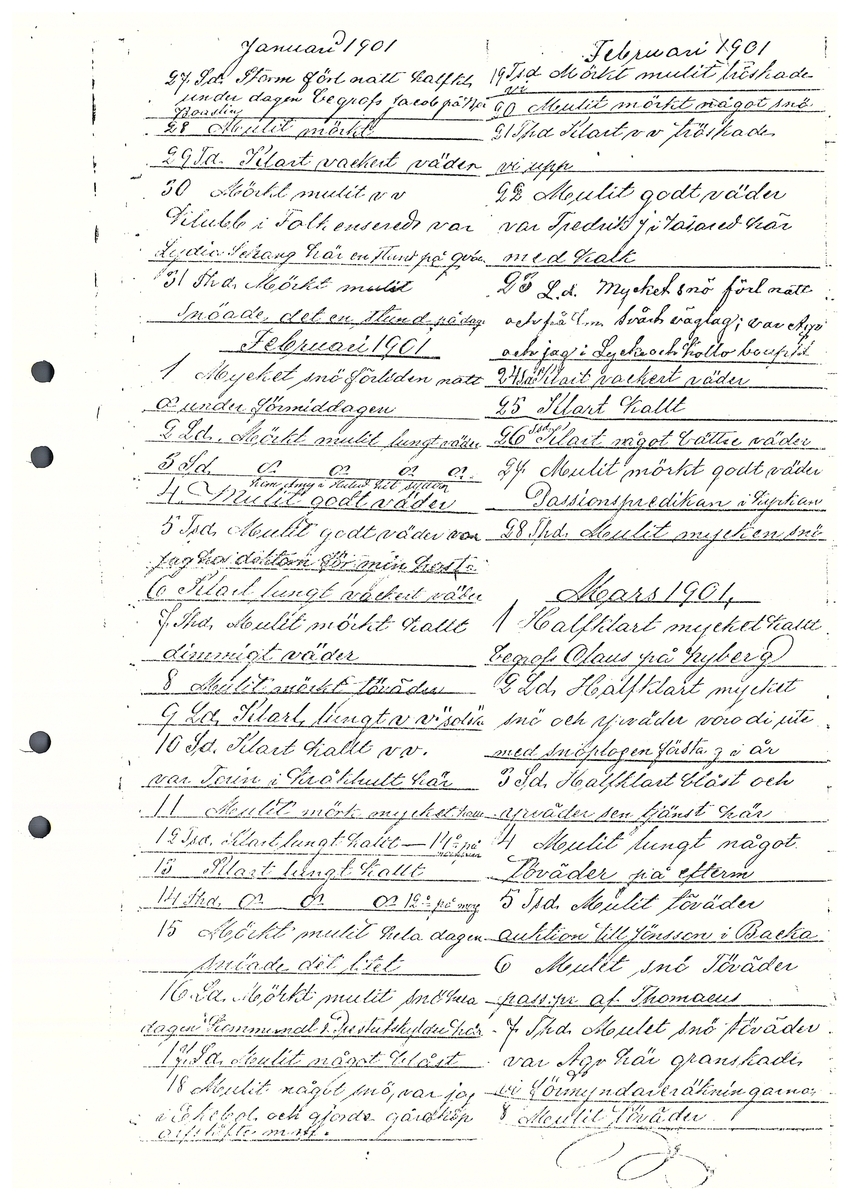 Januari 1901
27 Sd. Storm förl natt halfkl
under dagen begrofs Jacob på
28 Mulit mörkt
29 Tsd. Klart vackert väder
30 Mörkt mulit v v
Klubb i Falkensered var
Lydia här en stund på
31 Thd. Mörkt mulit
snöade det en stund på dag
Februari 1901
1 Mycket snö förliden natt
o under förmiddagen
2 Ld. Mörkt mulit lungt väder
3 Sd. o o o o
kom Amy i hit
4. Mulit godt väder
5 Tsd. Mulit godt väder var
jag hos doktorn för min
6 Klart lungt vackert väder
7 Thd. Mulit mörkt kallt
dimmigt väder
8 Mulit mörkt töväder
9 Ld. Klart, lungt v
10 Sd. Klart kallt v v.
var Torin i Kråkhult här
11 Mulit mörk mycket
12 Tsd. Klart lungt kallt — 14° på
13 Klart lungt kallt
14 Thd. o o o 12° på morg
15 Mörkt mulit hela dagen
snöade det litet
16 Ld. Mörkt mulit snö hela
dagen Kommunal & här
17 Sd. Mulit något blåst
18 Mulit något snö, var jag
i Ekebol och gjorde gårdsköp
m m.
Februari 1901
19 Tsd Mörkt mulit tröskade
vi
20 Mulit mörkt något snö
21 Thd Klart v v tröskade
vi upp
22 Mulit godt väder
var Fredrik J i här
med kalk
23 L.d. Mycket snö förl natt
och på f.m. svårt väglag; var Agv
och jag i Lycke och
24 Sd Klart vackert väder
25 Klart kallt
26 Tsd Klart något bättre väder
27 Mulit mörkt godt väder
Passionspredikan i kyrkan
28 Thd. Mulit mycken snö
Mars 1901,
1 Halfklart mycket kallt
begrofs Claus på Nyberg
2 Ld. Halfklart mycket
snö och yrväder voro di ute
med snöplogen första g i år
3 Sd. Halfklart blåst och
yrväder sen tjänst här
4 Mulit lungt något.
Töväder på efterm
5 Tsd. Mulit töväder
auktion till Jönsson i Backa
6 Mulet snö Töväder
pass.pr. af Thomaeus
7 Thd. Mulet snö töväder
var Agv här granskade
vi Förmyndareräkningarna
8 Mulit töväder